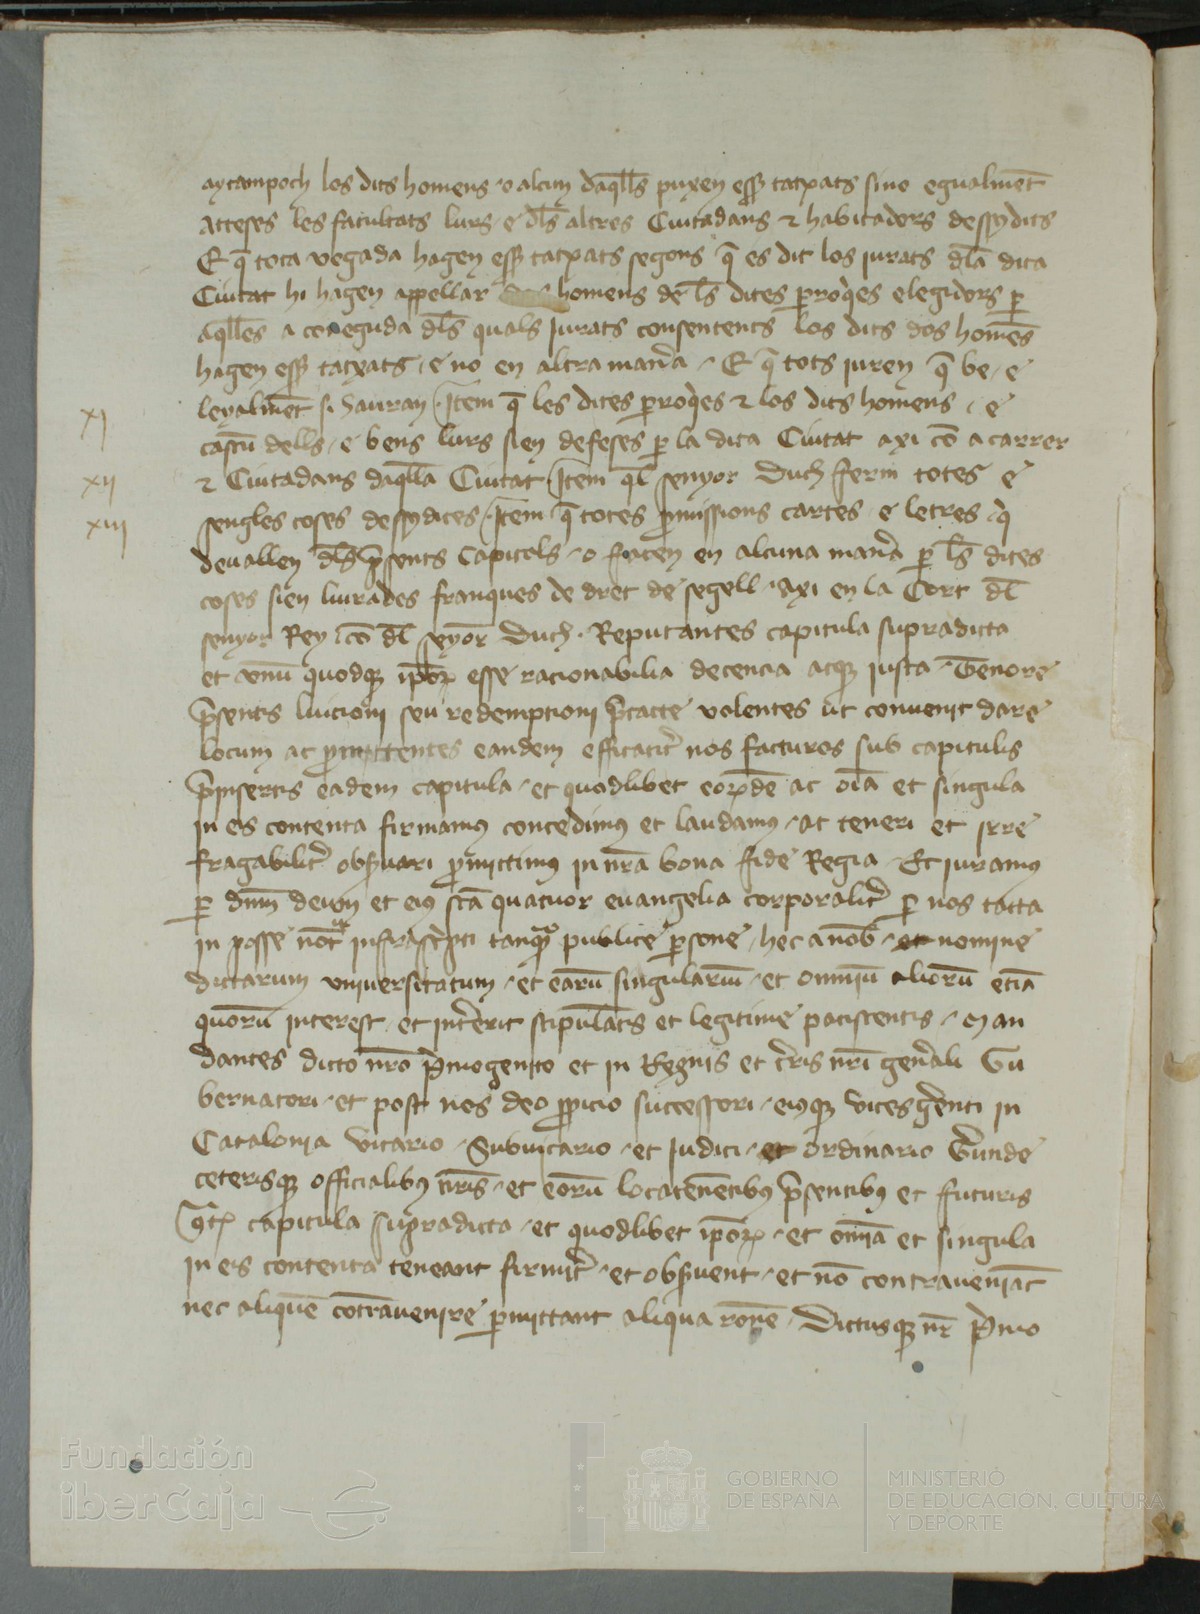 aytampoch los dits homens o alcun daq̄lls puxen ess̄ tatxats sino egualmēt
atteses les facultats lurs e dl̄s altres Ciutadans & habitadors dessydits
E q̄ tota vegada hagen ess̄ tatxats segons q̄ es dit los jurats dl̄a dita
Ciutat hi hagen appellar homens de ls̄ dites ꝑroq̄es elegidors ꝑ
aq̄lles a coneguda dl̄s quals jurats consentents los dits dos homēs
hagen ess̄ tatxats e no en altra maña E q̄ tots juren q̄ be e
leyalmēt si hauran Itē̄m q̄ les dites ꝑroq̄es & los dits homens e
cascū dells e bens lurs sien defeses ꝑ la dita Ciutat axi cō a carrer
XI
& Ciutadans daq̄lla Ciutat Item ql̄ senyor Duch ferm totes e
XII
sengles coses dessydites Item q̄ totes ꝓmissions cartes e letres q̄
XIII
devallen dl̄s p̄sents Capitols o facen en alcuna maña ꝑ ls̄ dites
coses sien liurades franques de dret de segell axi en la Cort dl̄
senyor Rey cō dl̄ seyōr Duch Reputantes capitula supradicta
et unū quodqꝫ ip̄oꝝ esse racionabilia decencia atqꝫ justa Tenore
p̄sentis luicioni seu redemptioni p̄tacte volentes ut convenit dare
locum ac ꝓmittentes eandem efficacit̄ nos facturos sub capitulis
p̄insertis eadem capitula et quodlibet eoꝝdē ac oīa et singula
in es contenta firmamꝰ concedimꝰ et laudamꝰ ac teneri et irre
fragabilit̄ obẜvari ꝓmittimꝰ in nr̄a bona fide Regia Et juramꝰ
ꝑ dn̄m deum et eiꝰ sc̄a quatuor evangelia corporalit̄ ꝑ nos tacta
in posse not̄ infrasc̄pti tanqꝫ publice ꝑsone hec a nob̄ et nomine
dictarum universitatum et earū singulariū et omniū aliorū etiā
quorū interest et int̄erit stipulātis et legitime paciscentis Man
dantes dicto nr̄o p̄mogenito et in Regnis et t̄ris nr̄i geñali Gu
bernatori et post nos deo ꝓpicio successori eiusqꝫ vices ḡenti in
Catalonia vicario Subvicario et judici et ordinario Ger̄unde
ceterisqꝫ officialibꝰ nr̄is et eorū locatenētibꝰ p̄sentibꝰ et futuris
capitula supradicta et quodlibet ip̄oꝝ et om̄ia et singula
in eis contenta teneant firmit̄ et obẜvent et nō contraveniāt
nec aliquē cōtravenire ꝑmittant aliqua rōne Dictusqꝫ nr̄ p̄mo
Fundación
iberCaja
GOBIERNO
DE ESPAÑA
MINISTERIO
DE EDUCACIÓN, CULTURA
Y DEPORTE